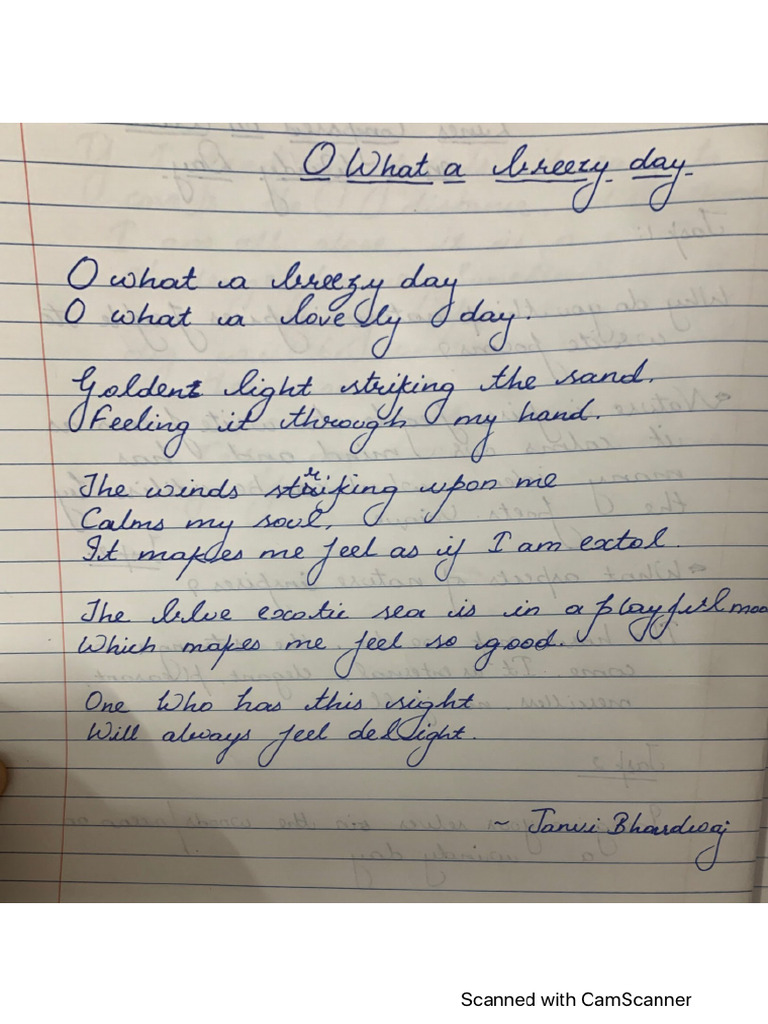 O What a breezy day.
O what a breezy day
O what a lovely day.
Golden light striking the sand.
Feeling it through my hand.
The winds striking upon me
Calms my soul,
It makes me feel as if I am extol.
The blue exotic sea is in a playful moo
Which makes me feel so good.
One Who has this sight
Will always feel delight.
~ Janvi Bhardwaj
Scanned with CamScanner